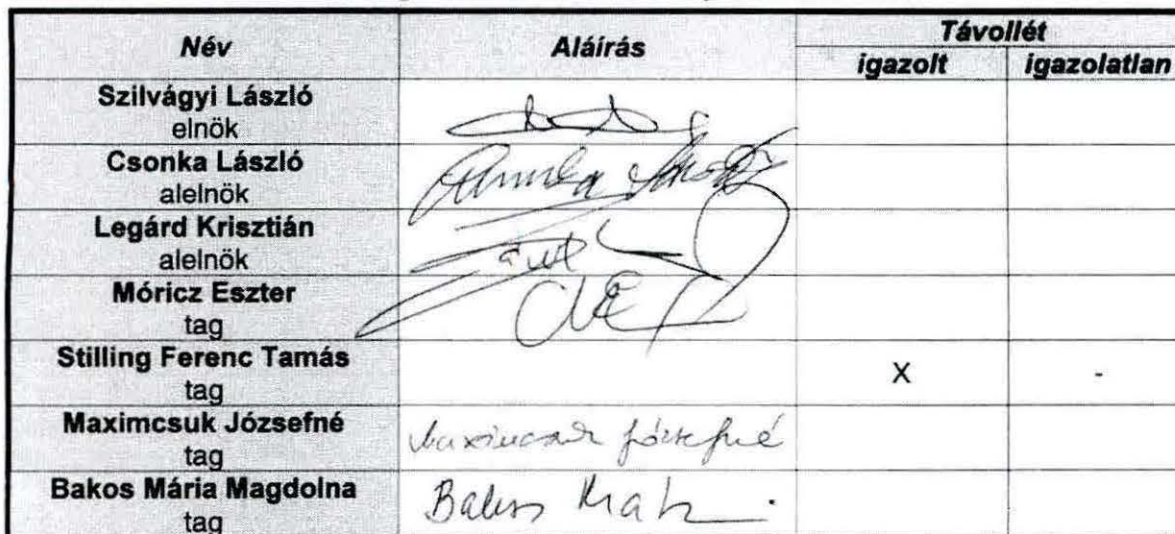 Név Aláírás Távollét
igazolt igazolatlan
Szilvágyi László
elnök
Csonka László
alelnök
Legárd Krisztián
alelnök
Móricz Eszter
tag
Stilling Ferenc Tamás X -
tag
Maximcsuk Józsefné Maximcsuk Józsefné
tag
Bakos Mária Magdolna Bakos
tag